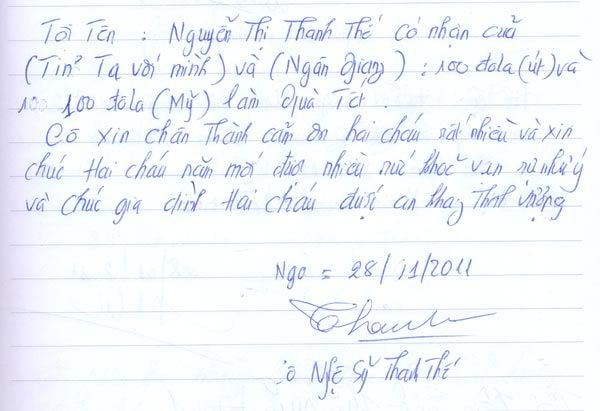 Tôi Tên : Nguyễn Thị Thanh Thế có nhận của
(Tin² Ta với mình) và (Ngân Giang) : 100 đôla (út) và
100 100 đôla (Mỹ) làm quà Tết.
Cô xin chân Thành cảm ơn hai cháu rất nhiều và xin
chúc Hai cháu năm mới được nhiều sức khoẻ vạn sự như ý
và chúc gia đình Hai cháu được an khang Thịnh vượng
Ngà = 28/11/2011
Nghệ Sỹ Thanh Thế